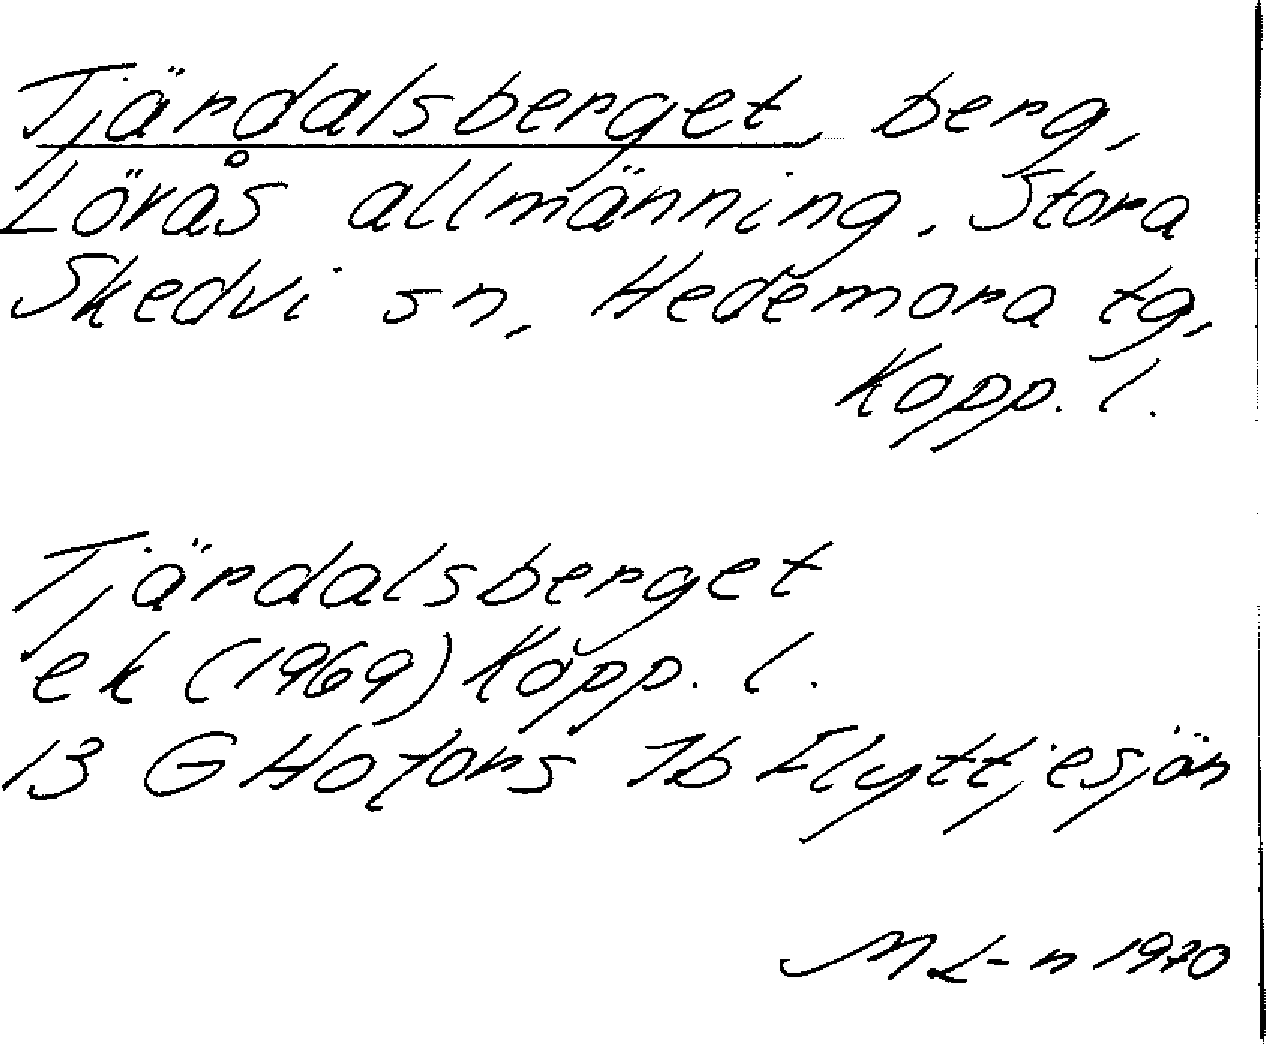 Tjärdalsberget, berg,
Lörås allmänning, Stora
Skedvi sn, Hedemora tg,
Kopp. l.
Tjärdalsberget
ek (1969) Kopp. l.
13 G Hofors 7b Flyttjesjön
M L-n 1970